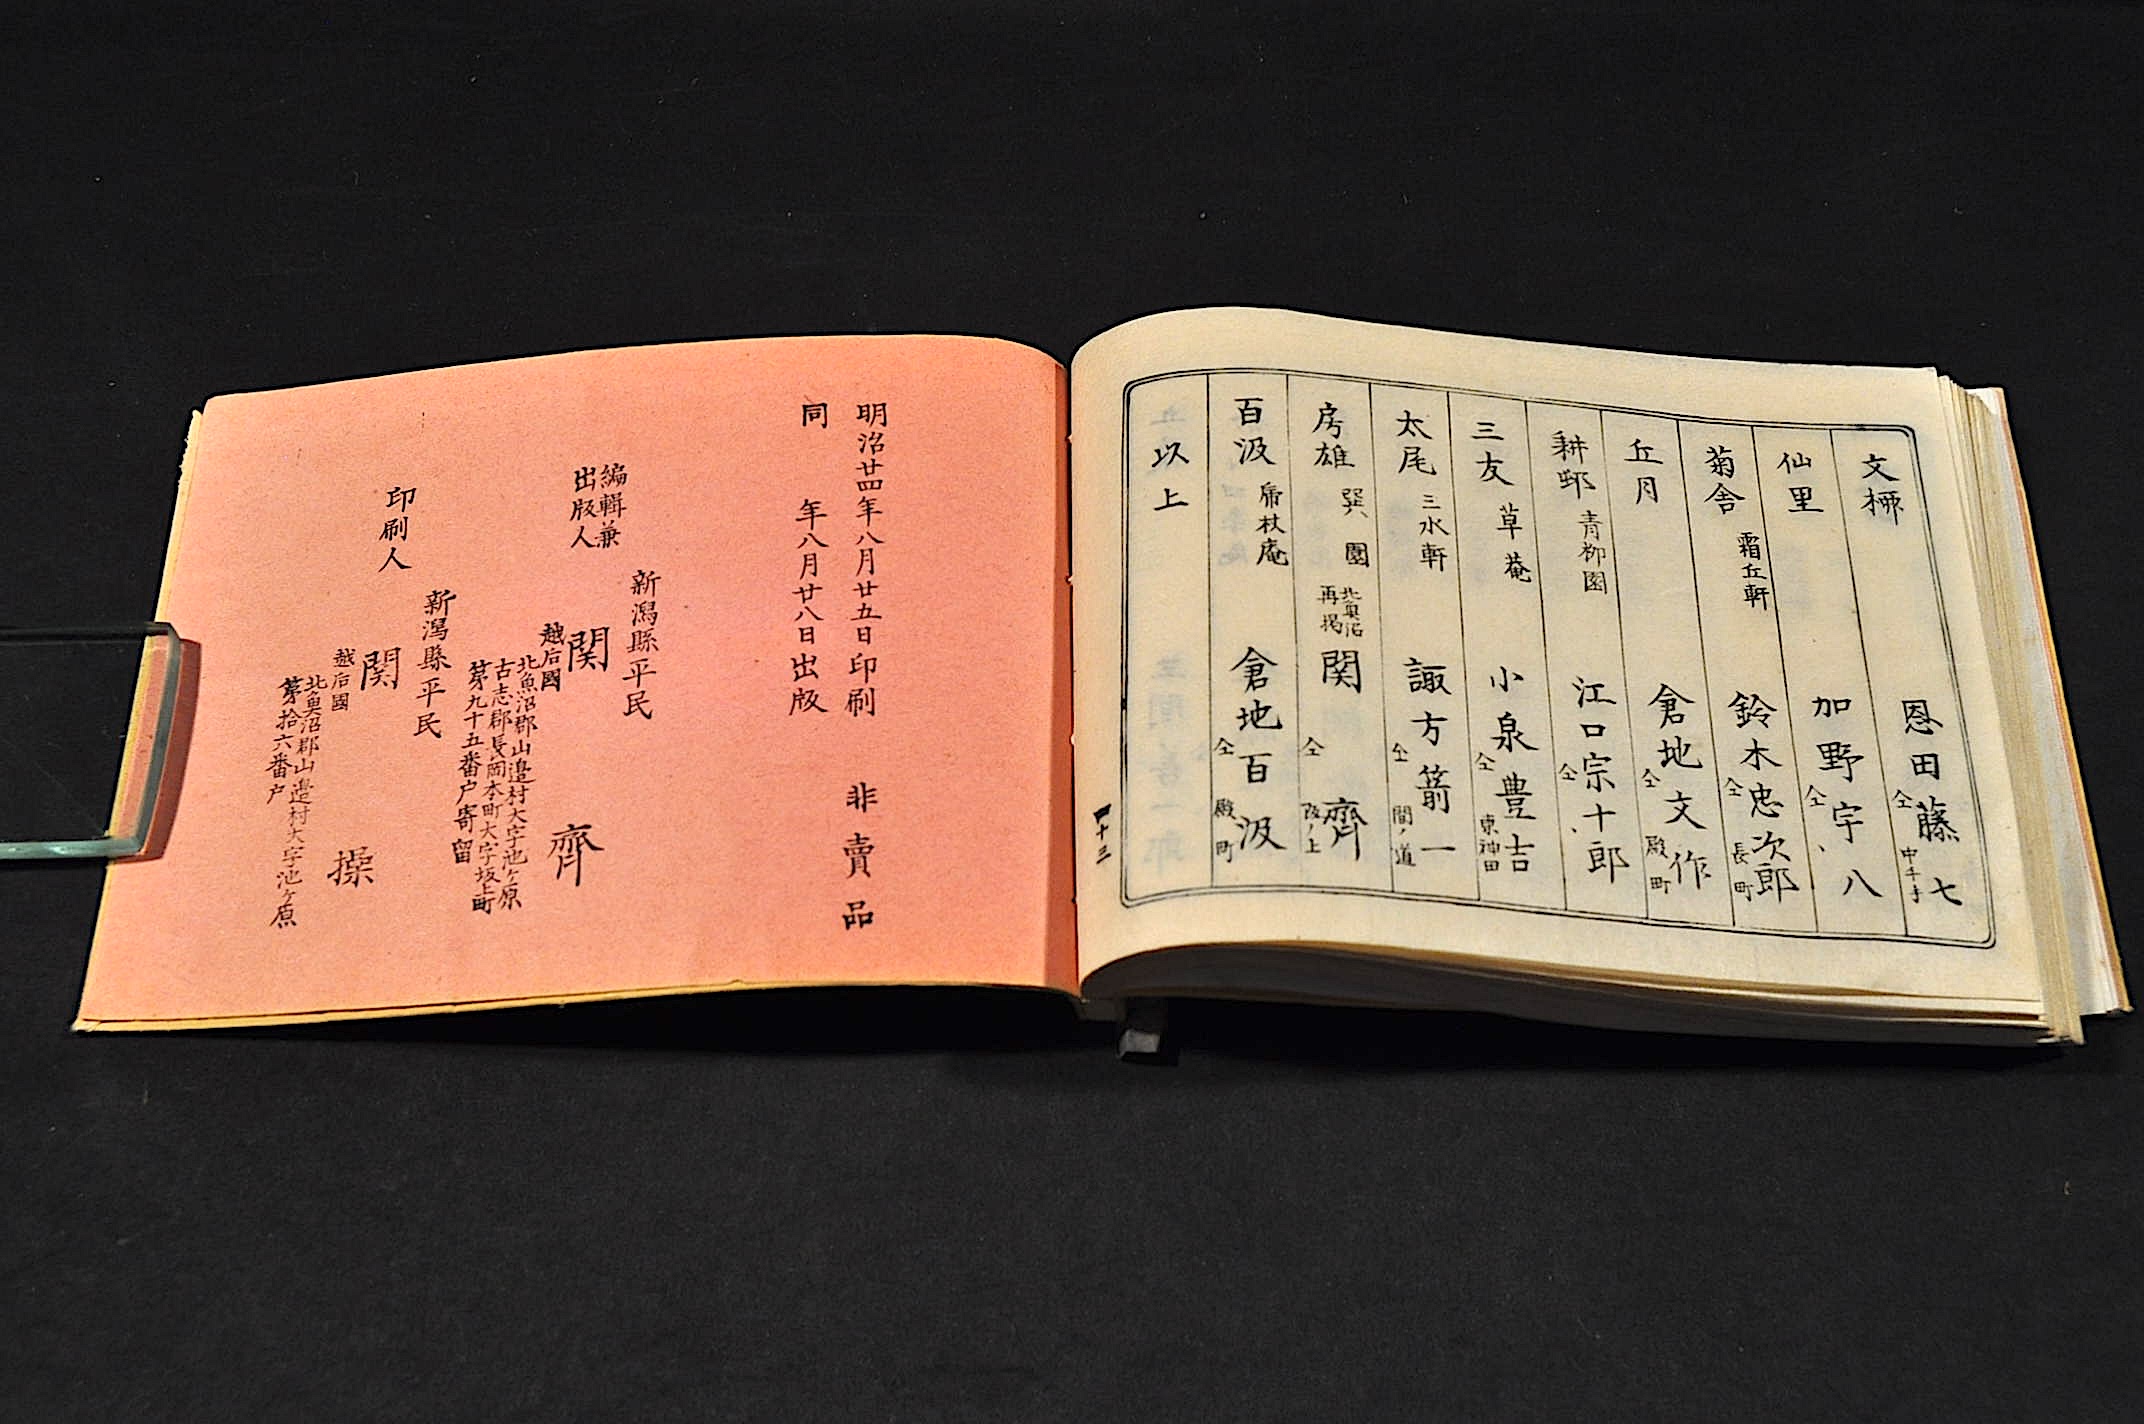 文梛 恩田藤七 仝 中千手
仙里 加野宇八 仝 、
菊舎 霜丘軒 鈴木忠次郎 仝 長町
丘月 倉地文作 仝 殿町
耕邨 青柳園 江口宗十郎 仝 、
三友 草菴 小泉豊吉 仝 東神田
太尾 三水軒 諏方箭一 仝 間ノ道
房雄 巽園 北魚沼再掲 関齊 仝 阪ノ上
百汲 帚杖庵 倉地百汲 仝 殿町
以上
四十三
明治廿四年八月廿五日印刷 非賣品
同 年八月廿八日出版
編輯兼
出版人
新潟縣平民
関 齊
越后國
北魚沼郡山邉村大字池ヶ原
古志郡長岡本町大字坂上町
第九十五番戸寄留
印刷人
新潟縣平民
関 操
越后國
北魚沼郡山邉村大字池ヶ原
第拾六番戸